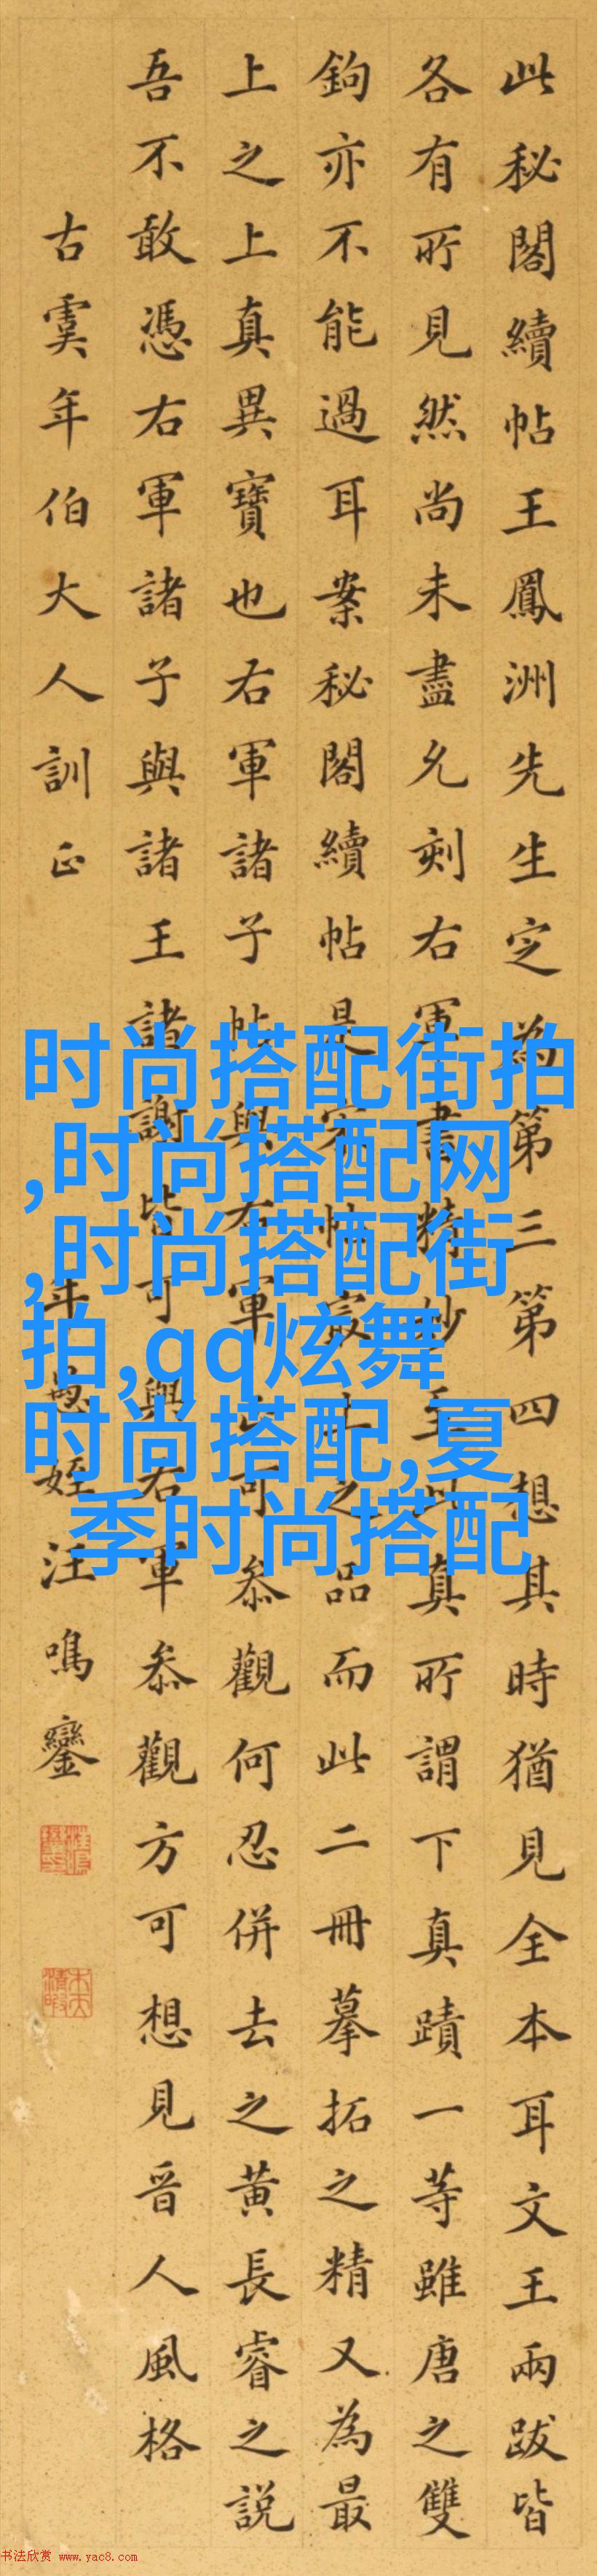 此秘閣續帖王鳳洲先生定為第三第四想其時猶見全本耳文王兩跋皆
各有所見然尚未盡允刻右軍書精妙至此真所謂下真蹟一等雖唐之雙
鉤亦不能過耳案秘閣續帖是宋帖最上之品而此二冊摹拓之精又為最
上之上真異寶也右軍諸子帖與右軍正可參觀何忍併去之黃長睿之說
吾不敢憑右軍諸子與諸王諸謝皆可與右軍參觀方可想見晉人風格
古虞年伯大人訓正
年愚姪汪鳴鑾
时尚搭配街拍
,时尚搭配网
,时尚搭配街
拍,qq炫舞
时尚搭配,夏
季时尚搭配
书法欣赏 www.yac8.com